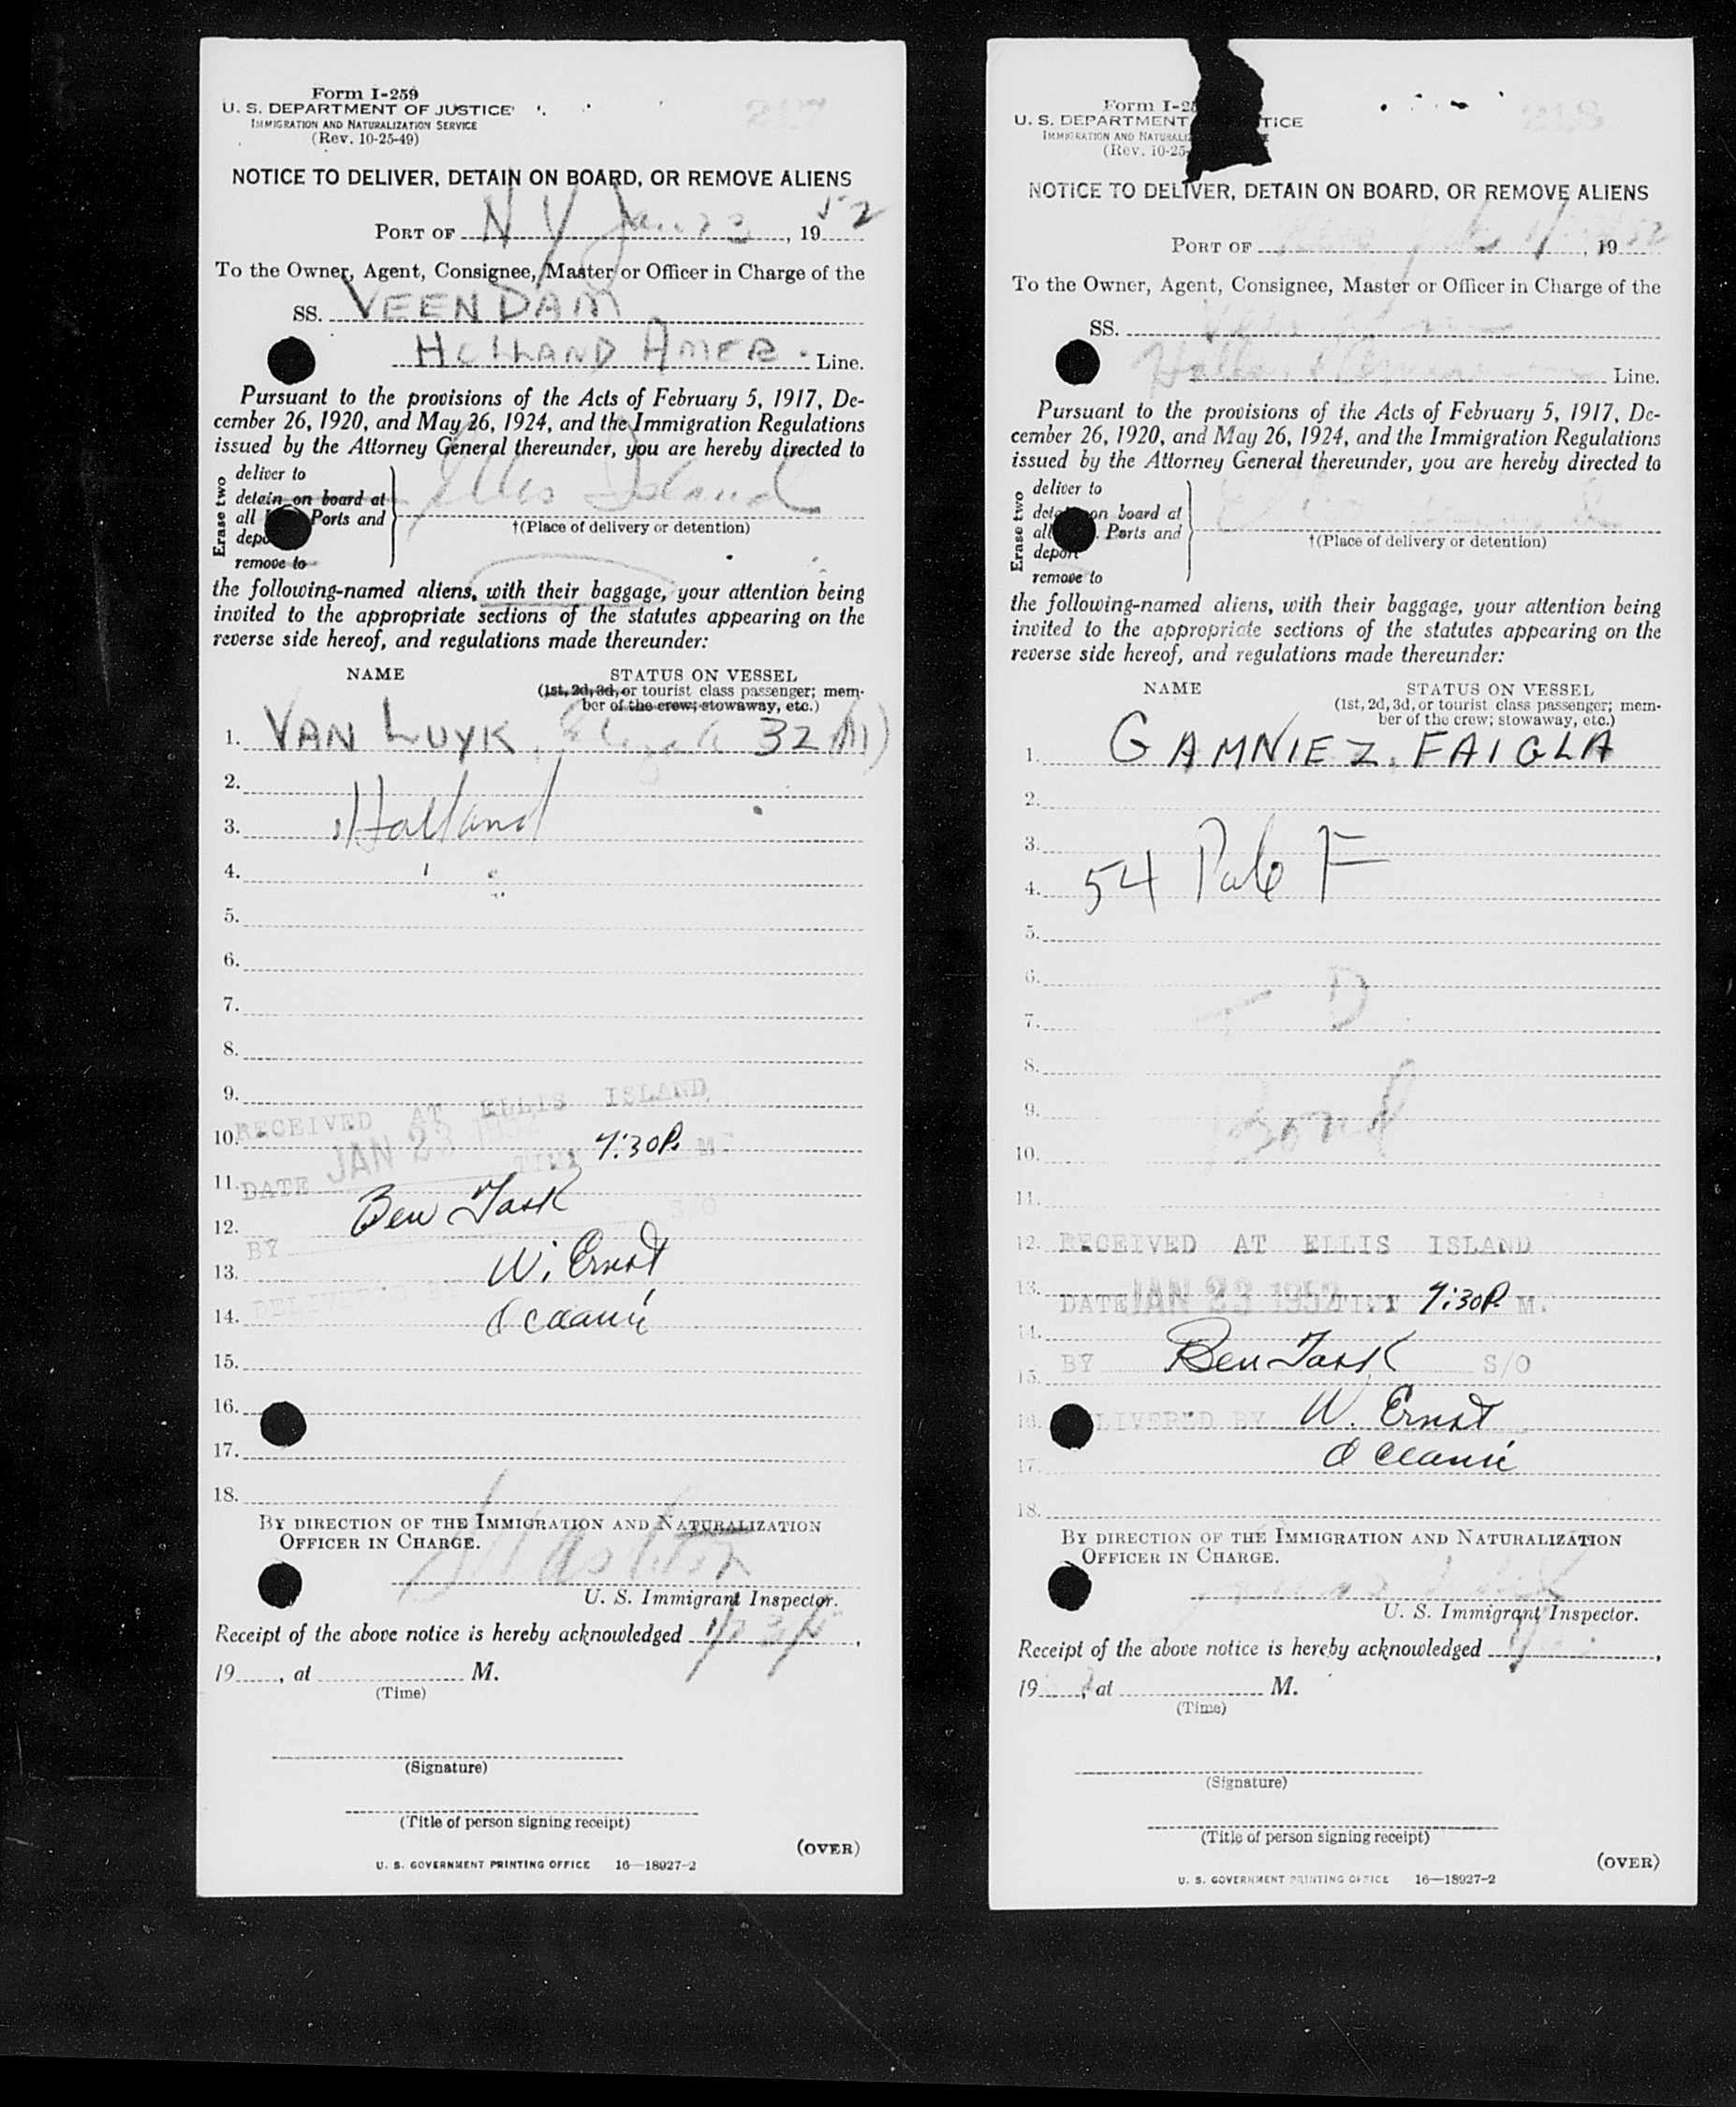 Form I-259
U. S. DEPARTMENT OF JUSTICE
IMMIGRATION AND NATURALIZATION SERVICE
(Rev. 10-25-49)
217
NOTICE TO DELIVER, DETAIN ON BOARD, OR REMOVE ALIENS
PORT OF N Y Jan 23, 1952
To the Owner, Agent, Consignee, Master or Officer in Charge of the
SS. VEENDAM
HOLLAND AMER. Line.
Pursuant to the provisions of the Acts of February 5, 1917, De-
cember 26, 1920, and May 26, 1924, and the Immigration Regulations
issued by the Attorney General thereunder, you are hereby directed to
Erase two
deliver to
detain on board at
all Ports and
depo
remove to
Ellis Island
†(Place of delivery or detention)
the following-named aliens, with their baggage, your attention being
invited to the appropriate sections of the statutes appearing on the
reverse side hereof, and regulations made thereunder:
NAME STATUS ON VESSEL
(1st, 2d, 3d, or tourist class passenger; mem-
ber of the crew; stowaway, etc.)
1. VAN LUYK, 32 (M)
2.
3. Holland
4.
5.
6.
7.
8.
9.
RECEIVED AT ELLIS ISLAND
10.
DATE JAN 23 1952 TIME 7:30 P. M.
11.
12. Ben Task S/O
BY
13. W. Ernst
DELIVERED BY
14. Oceanic
15.
16.
17.
18.
BY DIRECTION OF THE IMMIGRATION AND NATURALIZATION
OFFICER IN CHARGE.
U. S. Immigrant Inspector.
Receipt of the above notice is hereby acknowledged 1/23/5,
19, at M.
(Time)
(Signature)
(Title of person signing receipt)
(OVER)
U. S. GOVERNMENT PRINTING OFFICE 16—18927-2
Form I-25
U. S. DEPARTMENT TICE
IMMIGRATION AND NATURALIZ
(Rev. 10-25-
218
NOTICE TO DELIVER, DETAIN ON BOARD, OR REMOVE ALIENS
PORT OF , 1952
To the Owner, Agent, Consignee, Master or Officer in Charge of the
SS. Veendam
Holland American Line.
Pursuant to the provisions of the Acts of February 5, 1917, De-
cember 26, 1920, and May 26, 1924, and the Immigration Regulations
issued by the Attorney General thereunder, you are hereby directed to
Erase two
deliver to
deta on board at
all . Ports and
deport
remove to
†(Place of delivery or detention)
the following-named aliens, with their baggage, your attention being
invited to the appropriate sections of the statutes appearing on the
reverse side hereof, and regulations made thereunder:
NAME STATUS ON VESSEL
(1st, 2d, 3d, or tourist class passenger; mem-
ber of the crew; stowaway, etc.)
1. GAMNIEZ, FAIGLA
2.
3.
4. 54 Pole F
5.
6.
7. D
8.
9. Bond
10.
11.
12. RECEIVED AT ELLIS ISLAND
13. DATE JAN 23 1952 TIME 7:30 P. M.
14.
BY Ben Task S/O
15.
16. LIVERED BY W. Ernst
17. Oceanic
18.
BY DIRECTION OF THE IMMIGRATION AND NATURALIZATION
OFFICER IN CHARGE.
U. S. Immigrant Inspector.
Receipt of the above notice is hereby acknowledged ,
19, at M.
(Time)
(Signature)
(Title of person signing receipt)
(OVER)
U. S. GOVERNMENT PRINTING OFFICE 16—18927-2